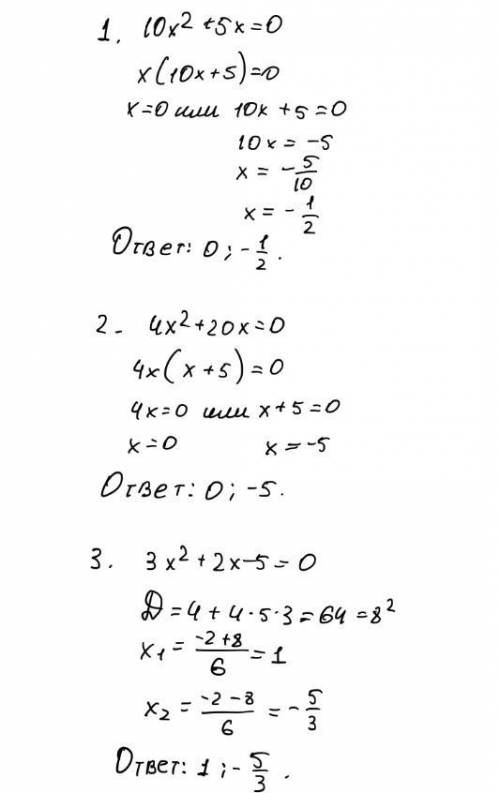 1. 10x² + 5x = 0
x(10x + 5) = 0
x = 0 или 10x + 5 = 0
10x = -5
x = -5/10
x = -1/2
Ответ: 0; -1/2.
2 - 4x² + 20x = 0
4x(x + 5) = 0
4x = 0 или x + 5 = 0
x = 0 x = -5
Ответ: 0; -5.
3. 3x² + 2x - 5 = 0
D = 4 + 4·5·3 = 64 = 8²
x₁ = (-2+8)/6 = 1
x₂ = (-2-8)/6 = -5/3
Ответ: 1; -5/3.